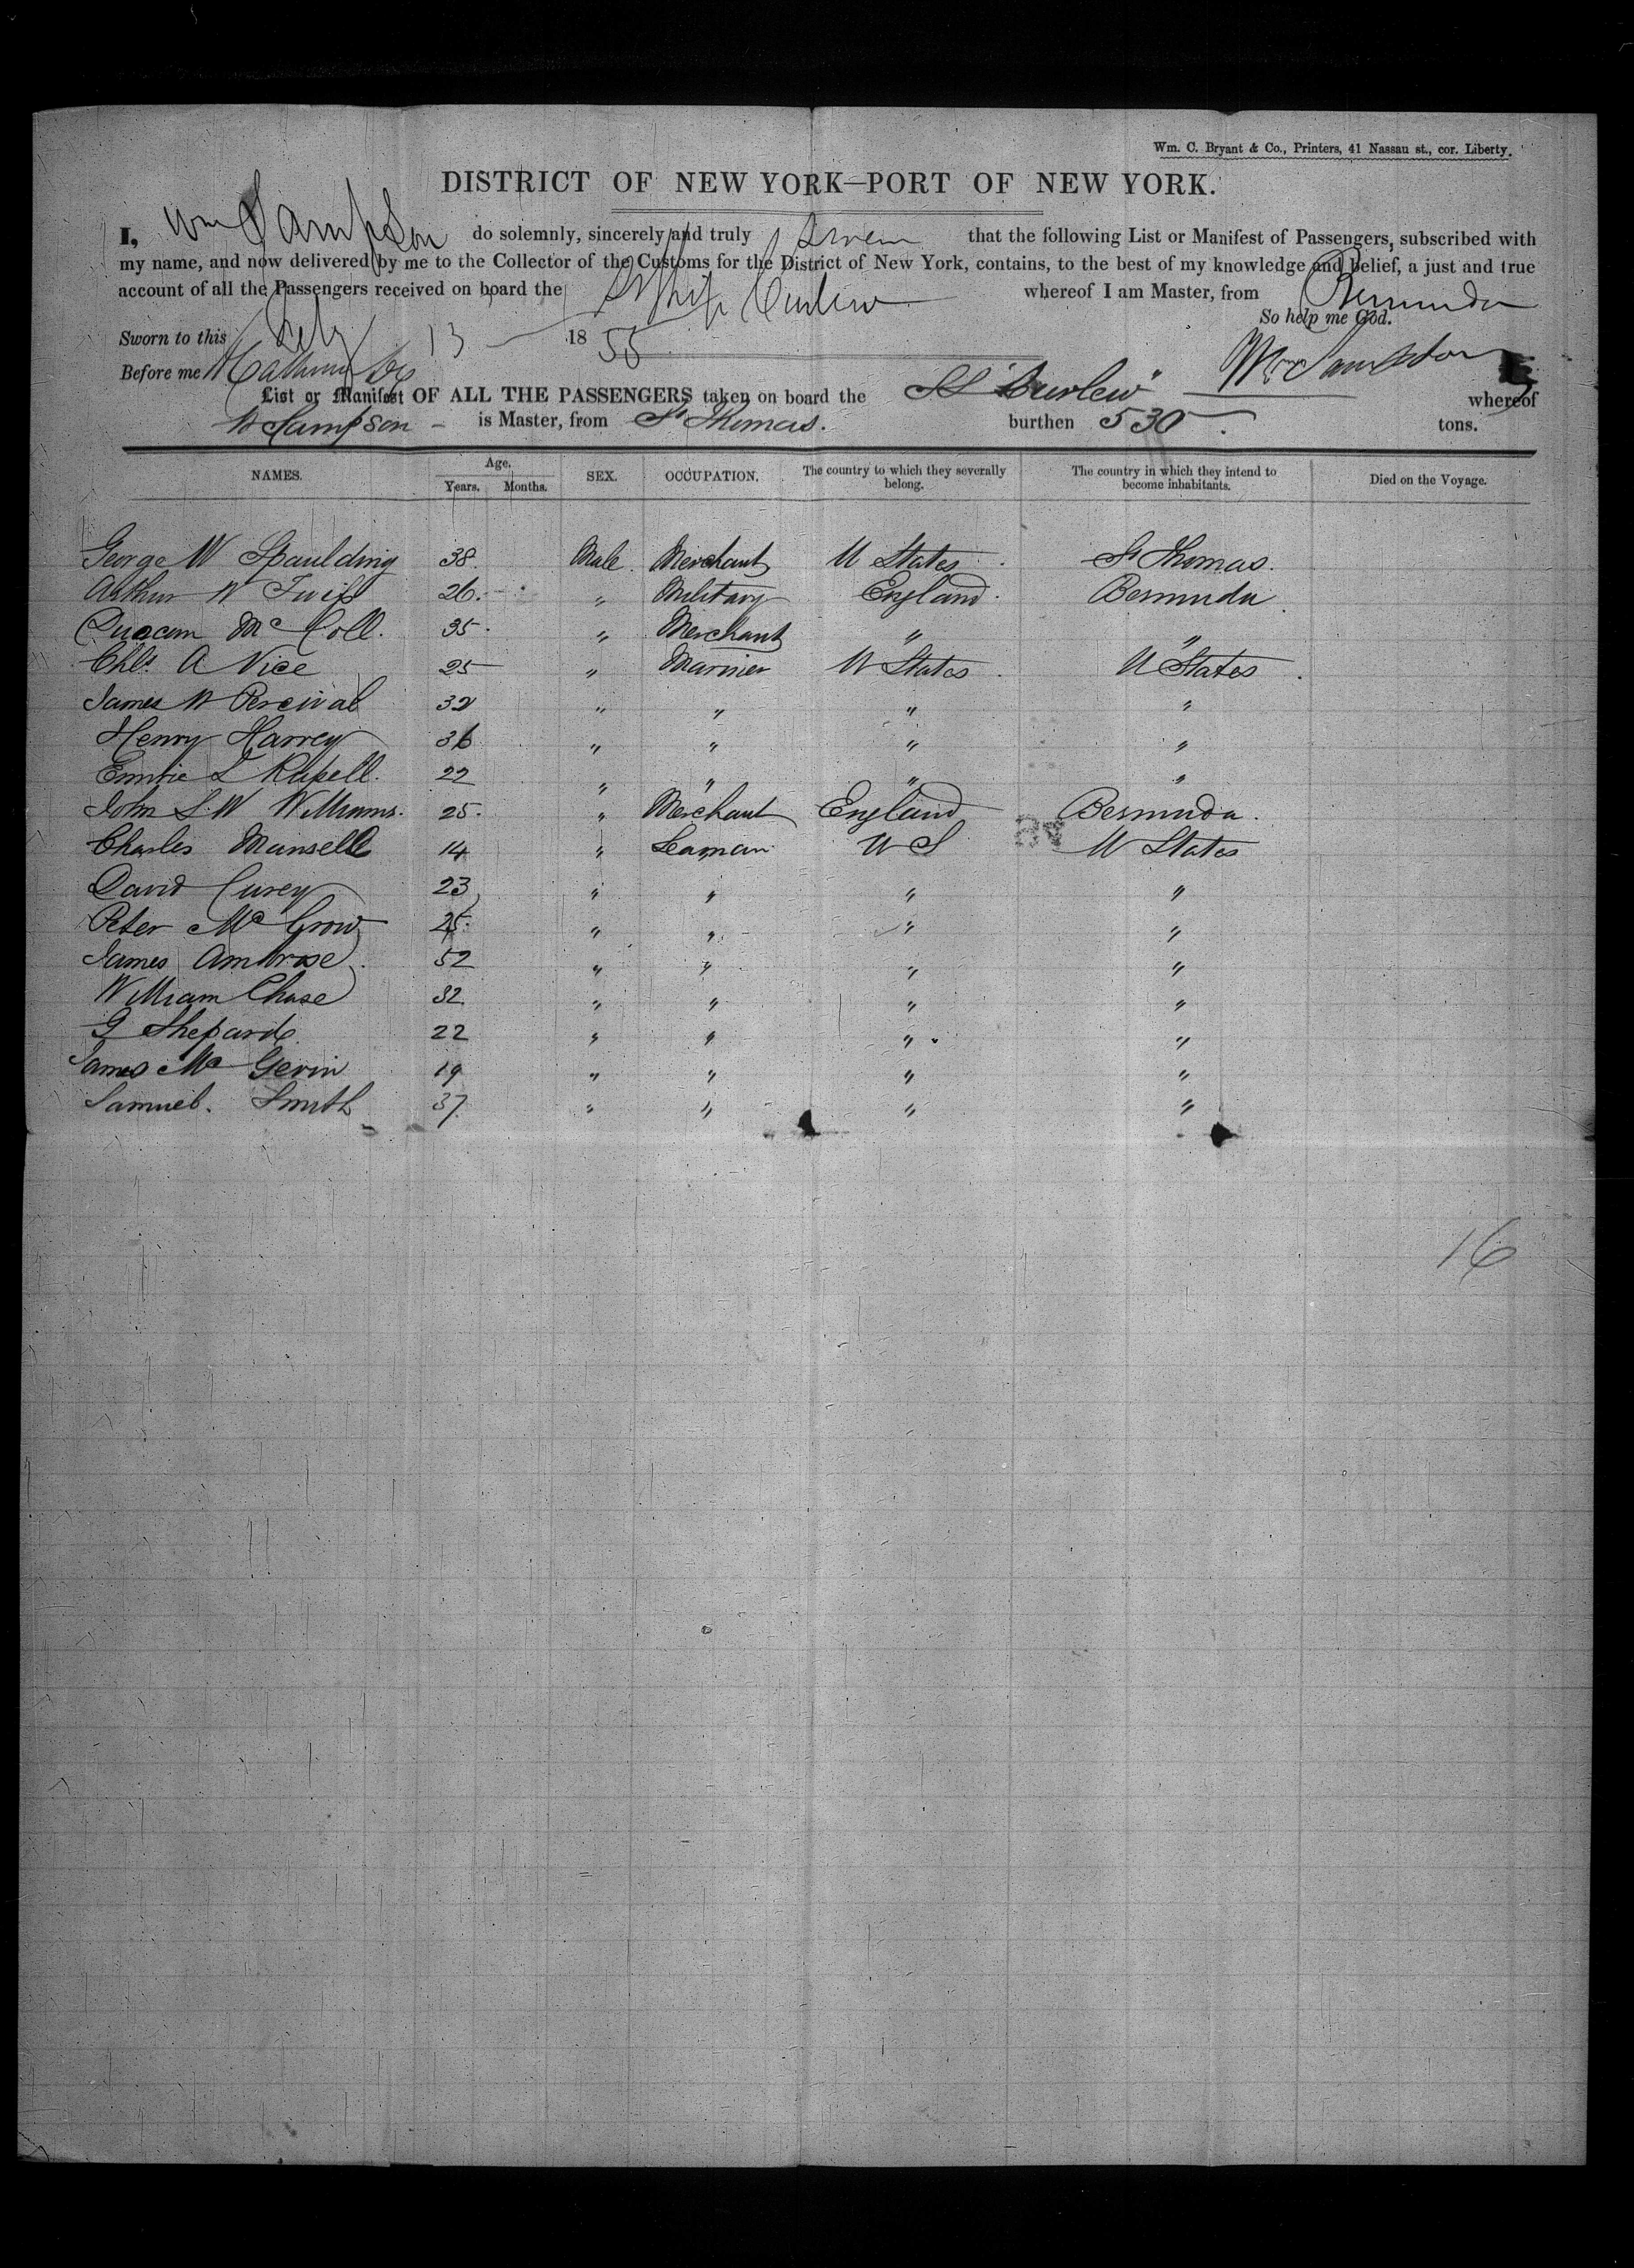 Wm. C. Bryant & Co., Printers, 41 Nassau st., cor. Liberty.
DISTRICT OF NEW YORK—PORT OF NEW YORK.
I, Wm Sampson do solemnly, sincerely and truly swear that the following List or Manifest of Passengers, subscribed with
my name, and now delivered by me to the Collector of the Customs for the District of New York, contains, to the best of my knowledge and belief, a just and true
account of all the Passengers received on board the Curlew whereof I am Master, from Bermuda
So help me God.
Sworn to this 13 1855
Wm Sampson
Before me
List or Manifest OF ALL THE PASSENGERS taken on board the SS "Curlew" whereof
W Sampson is Master, from St Thomas. burthen 530 tons.
NAMES. Age. Years. Months. SEX. OCCUPATION. The country to which they severally belong. The country in which they intend to become inhabitants. Died on the Voyage.
George W Spaulding 38. Male. Merchant U States. St Thomas.
Arthur W Twiss 26. " Military England. Bermuda
Duncan Mc Coll. 35. " Merchant " "
Chls. A Vice 25 " Mariner U States. U States.
James W Percival 32 " " " "
Henry Harvey 36 " " " "
L Russell. 22 " " " "
John S. W Williams. 25. " Merchant England Bermuda.
Charles Mansell 14 " Seaman U S U States
David Curey 23 " " " "
Peter Mc Grow 25. " " " "
James Ambrose. 52 " " " "
William Chase 32. " " " "
G Shepard. 22 " " " "
James Mc Gevin 19 " " " "
Samuel. Smith 37 " " " "
16